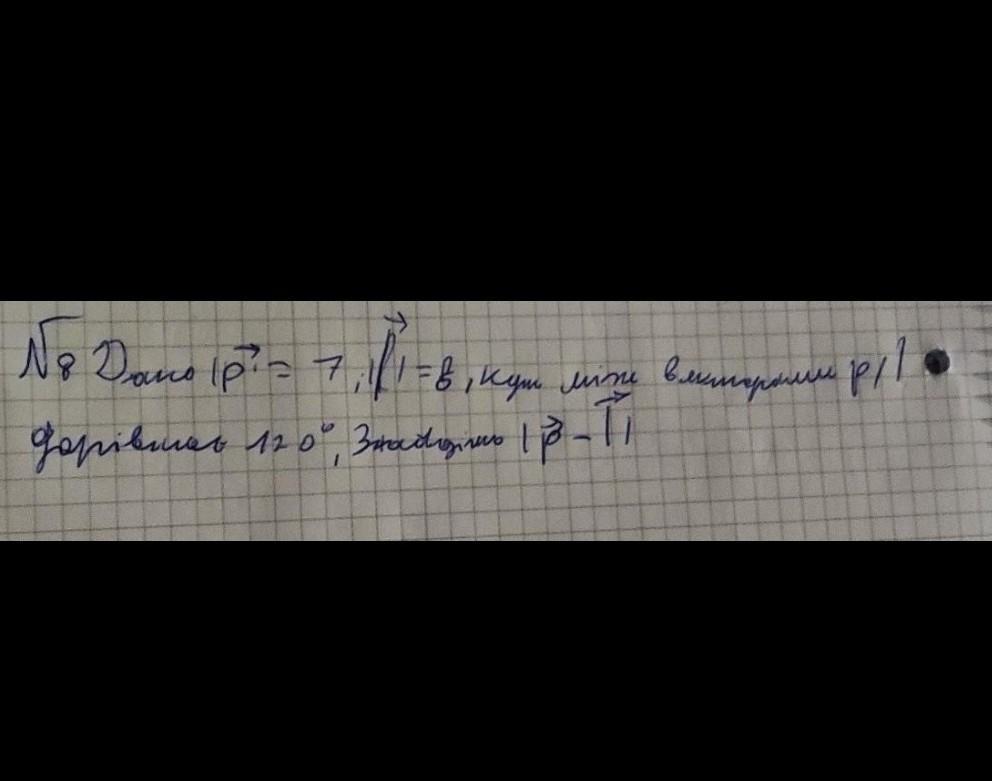 №8 Дано |p⃗| = 7, |l⃗| = 8, кут між векторами p, l
дорівнює 120°, Знайдіть |p⃗ - l⃗|